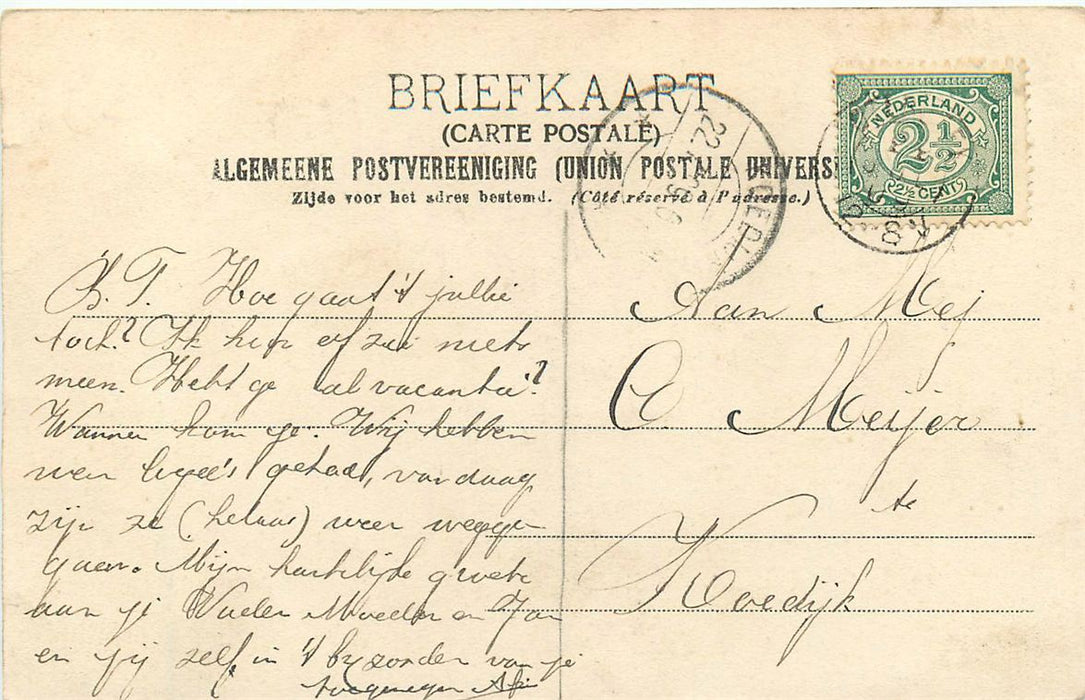 BRIEFKAART
(CARTE POSTALE)
ALGEMEENE POSTVEREENIGING (UNION POSTALE UNIVERSE
Zijde voor het adres bestemd. (Côté réservé à l'adresse.)
NEDERLAND
2½
2½ CENT
22
B. T. Hoe gaat 't jullie
toch? Ik hoor of zie niets
meer. Hebt ge al vacantie?
Wanneer kom ge. Wij hebben
weer logee's gehad, vandaag
zijn ze (helaas) weer wegge-
gaan. Mijn hartelijke groete
aan je Vader Moeder en Jan
en jij zelf in 't byzonder van je
toegenegen
Aan Mej
C Meijer
te
Koedijk